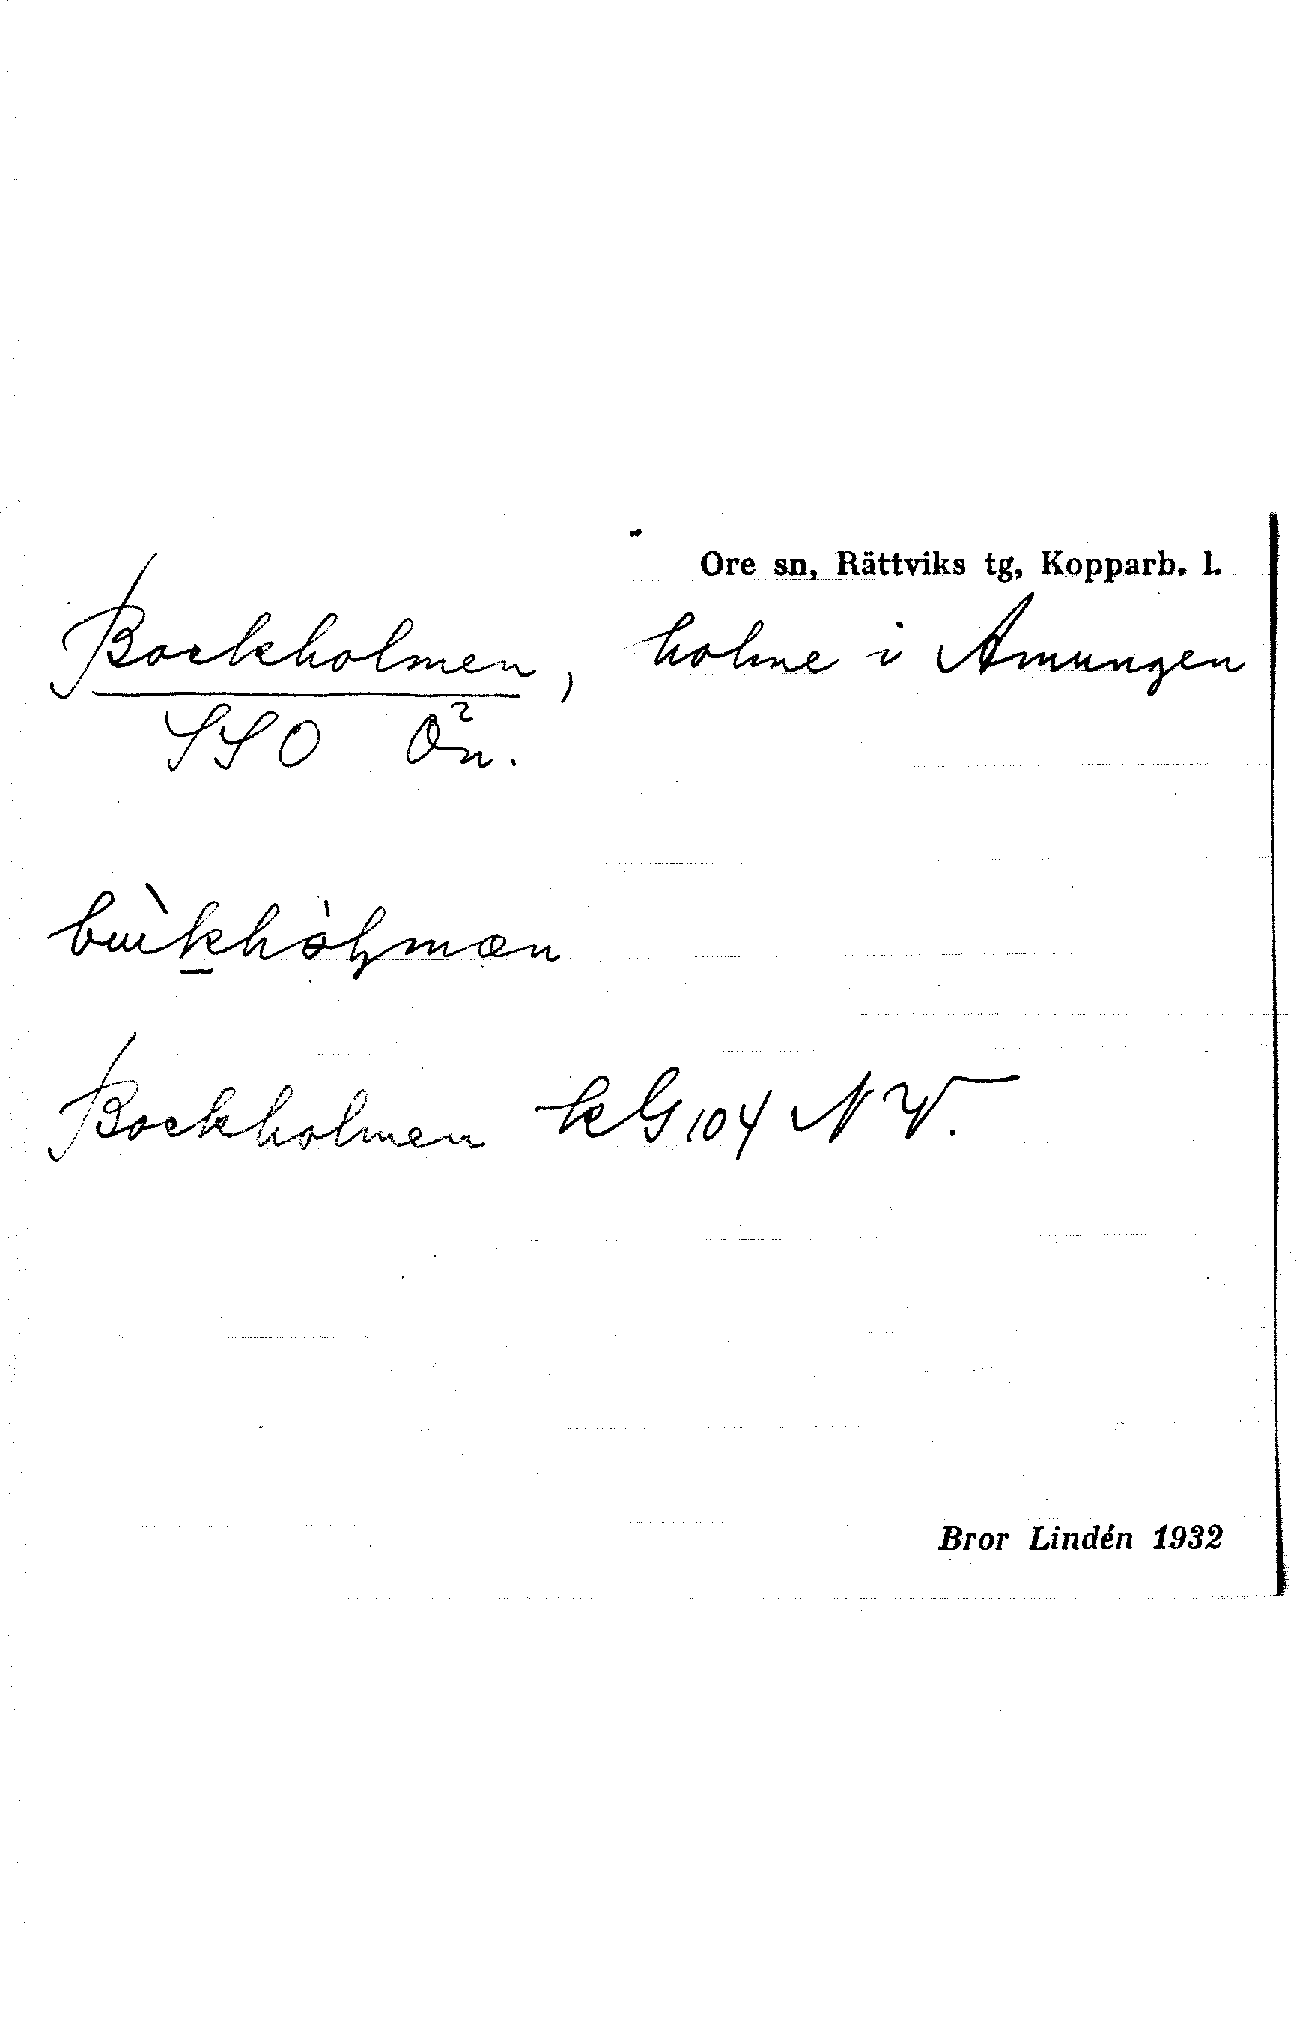 Ore sn, Rättviks tg, Kopparb. l.
Bockholmen, holme i Amungen
SSO Ön.
Bockholmen kG 104 NV.
Bror Lindén 1932